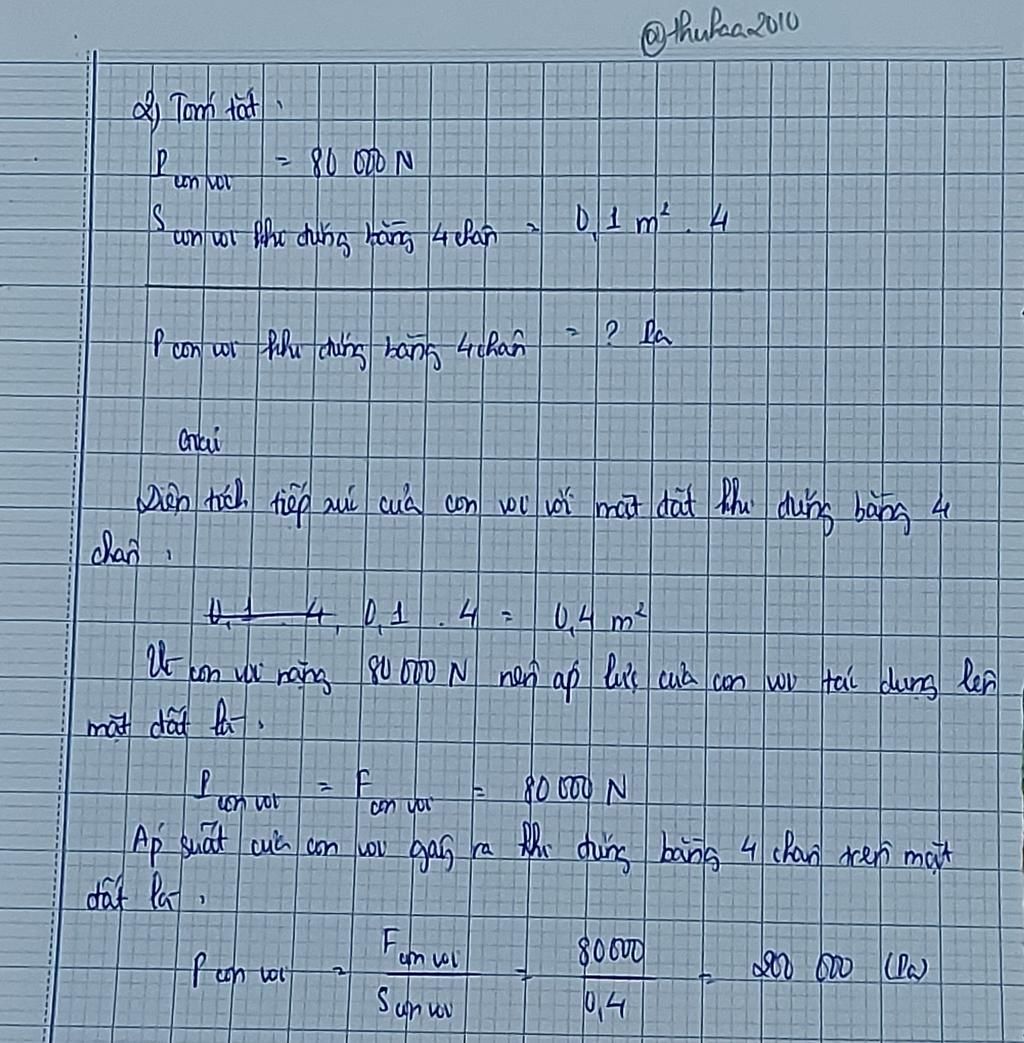 @thuhaa2010
2) Tóm tắt:
P con voi = 80 000 N
S con voi khi đứng bằng 4 chân = 0,1 m² . 4
P con voi khi đứng bằng 4 chân = ? Pa
Giải
Diện tích tiếp xúc của con voi với mặt đất khi đứng bằng 4
chân:
0,1 . 4 = 0,4 m²
Vì con voi nặng 80 000 N nên áp lực của con voi tác dụng lên
mặt đất là:
P con voi = F con voi = 80 000 N
Áp suất của con voi gây ra khi đứng bằng 4 chân trên mặt
đất là:
P con voi = F con voi / S con voi = 80 000 / 0,4 = 200 000 (Pa)